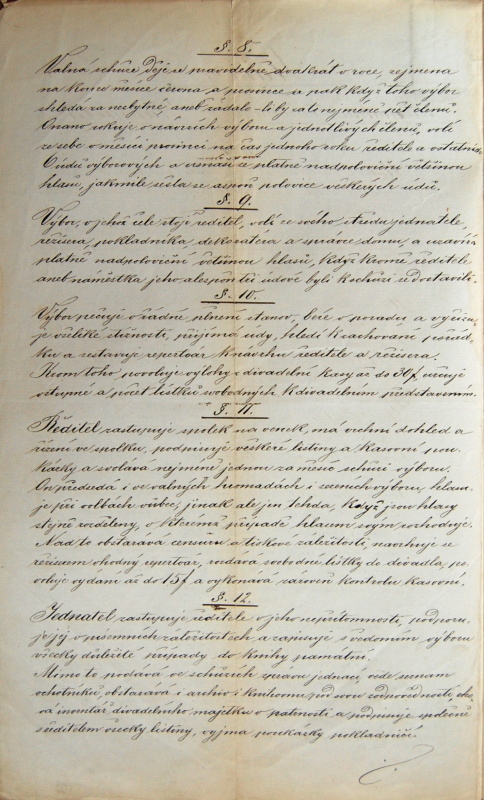 §. 8.
Valná schůze děje se pravidelně dvakrát v roce, zejména
na konci měsíce června, a prosince a pak když toho výbor
shledá za nezbytné, aneb žádalo-li by za to nejméně pět členů.
Ona rokuje o návrzích výboru a jednotlivých členů, volí
ze sebe v měsíci prosinci na čas jednoho roku ředitele a ostatních
6 údů výborových a usnáší se platně nadpoloviční většinou
hlasů, jakmile sešla se aspoň polovice veškerých údů.
§. 9.
Výbor, v jehož čele stojí ředitel, volí ze svého středu jednatele,
režisera, pokladníka, dekoratera a správce domu, a uzavírá
platně nadpoloviční většinou hlasů, když kromě ředitele
aneb náměstka jeho alespoň tři údové byli k schůzi se dostavili.
§. 10.
Výbor pečuje o řádné plnění stanov, béře v poradu a vyřizu-
je veškeré stížnosti, přijímá údy, hledí k zachování pořád-
ku a sestavuje repertoar k návrhu ředitele a režisera.
Krom toho povoluje výlohy z divadelní kasy až do 30 f, určuje
vstupné a počet lístků svobodných k divadelním představením.
§. 11.
Ředitel zastupuje spolek na venek, má vrchní dohled a
řízení ve spolku, podpisuje veškeré listiny a kasovní pou-
kázky a svolává nejméně jednou za měsíc schůzi výboru.
On předsedá i ve valných hromadách i sezeních výboru, hlasu-
je při volbách vůbec, jinak ale jen tehdá, když jsou hlasy
stejně rozděleny, v kteremž případě hlasem svým rozhoduje.
Nad to obstarává censuru a tiskové záležitosti, navrhuje se
režiserem vhodný repertoár, rozdává svobodné lístky do divadla, po-
voluje vydání až do 15 f a vykonává zároveň kontrolu kasovní.
§. 12.
Jednatel zastupuje ředitele v jeho nepřítomnosti, podporu-
je jej v písemních záležitostech a zapisuje s vědomím výboru
všecky důležité případy do knihy památní.
Mimo to podává ve schůzích zprávu jednací, vede seznam
ochotníků, obstarává i archiv i knihovnu pod svou zodpovědností, cho-
vá inventář divadelního majetku v patrnosti a podpisuje společně
s ředitelem všecky listiny, vyjma poukázky pokladniční.